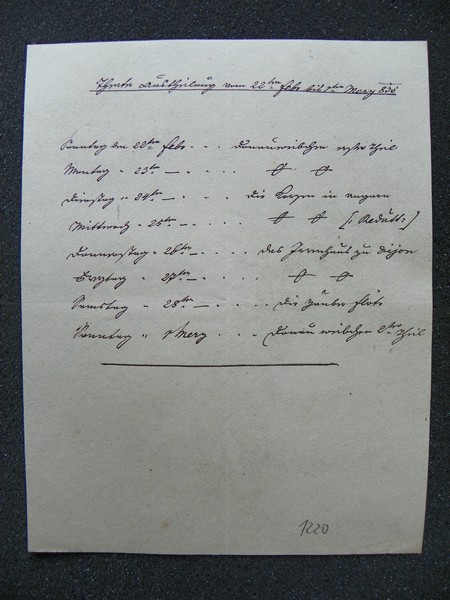 Theater Austheilung vom 22ten Feb: bis 1ten Merz 835
Sonntag den 22ten Feb: . . . Donauweibchen erster Theil
Montag " 23ten — . . . .
Dienstag " 24ten — . . . . die in Ungarn
Mittwoch " 25ten — . . . . [: Redutt :]
Donnerstag " 26ten — . . . . das Irrenhaus zu Dijon
Freytag " 27ten — . . . .
Samstag " 28ten — . . . . die Zauberflöte
Sonntag " 1 Merz . . . Donauweibchen 2ter Theil
1220